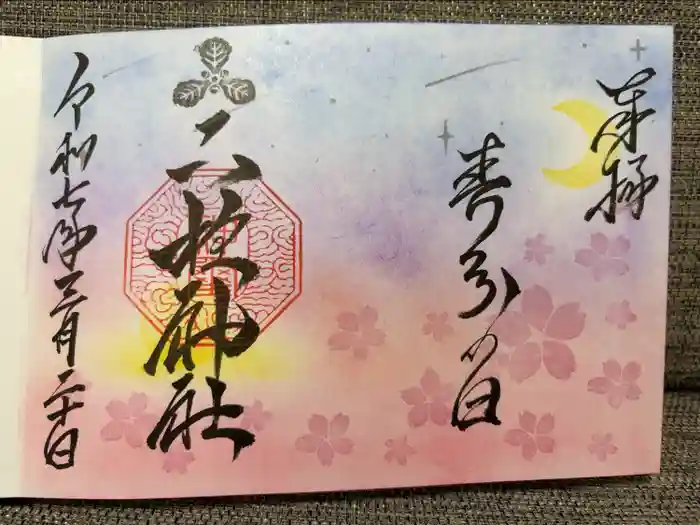 奉拝
春分の日
二柱神社
令和七年三月二十日